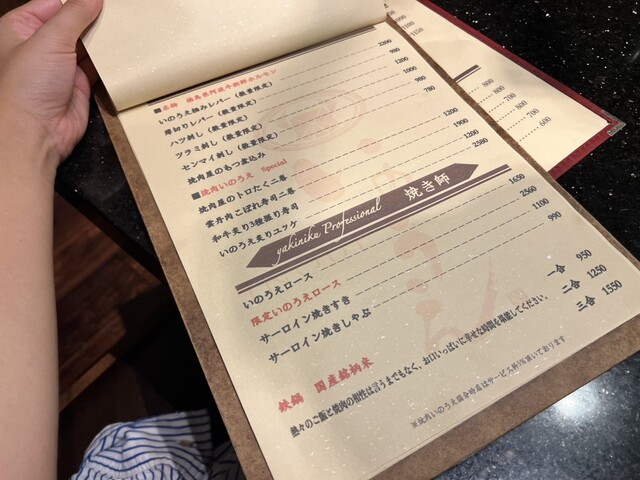 ■名物 徳島県阿波牛新鮮ホルモン
いのうえ極みレバー(数量限定) 2200
厚切りレバー(数量限定) 980
ハツ刺し(数量限定) 1200
ツラミ刺し(数量限定) 1000
センマイ刺し(数量限定) 980
焼肉屋のもつ煮込み 780
■焼肉いのうえ Special
焼肉屋のトロたく二巻 1200
雲丹肉こぼれ寿司二巻 1900
和牛炙り3種握り寿司 1200
いのうえ炙りユッケ 2580
yakiniku Professional 焼き師
いのうえロース 1650
限定いのうえロース 2560
サーロイン焼きすき 1100
サーロイン焼きしゃぶ 990
鉄鍋 国産銘柄米
一合 950
二合 1250
三合 1550
熱々のご飯と焼肉の相性は言うまでもなく、お口いっぱいに幸せな時間を堪能してください。
1150
800
800
700
700
600